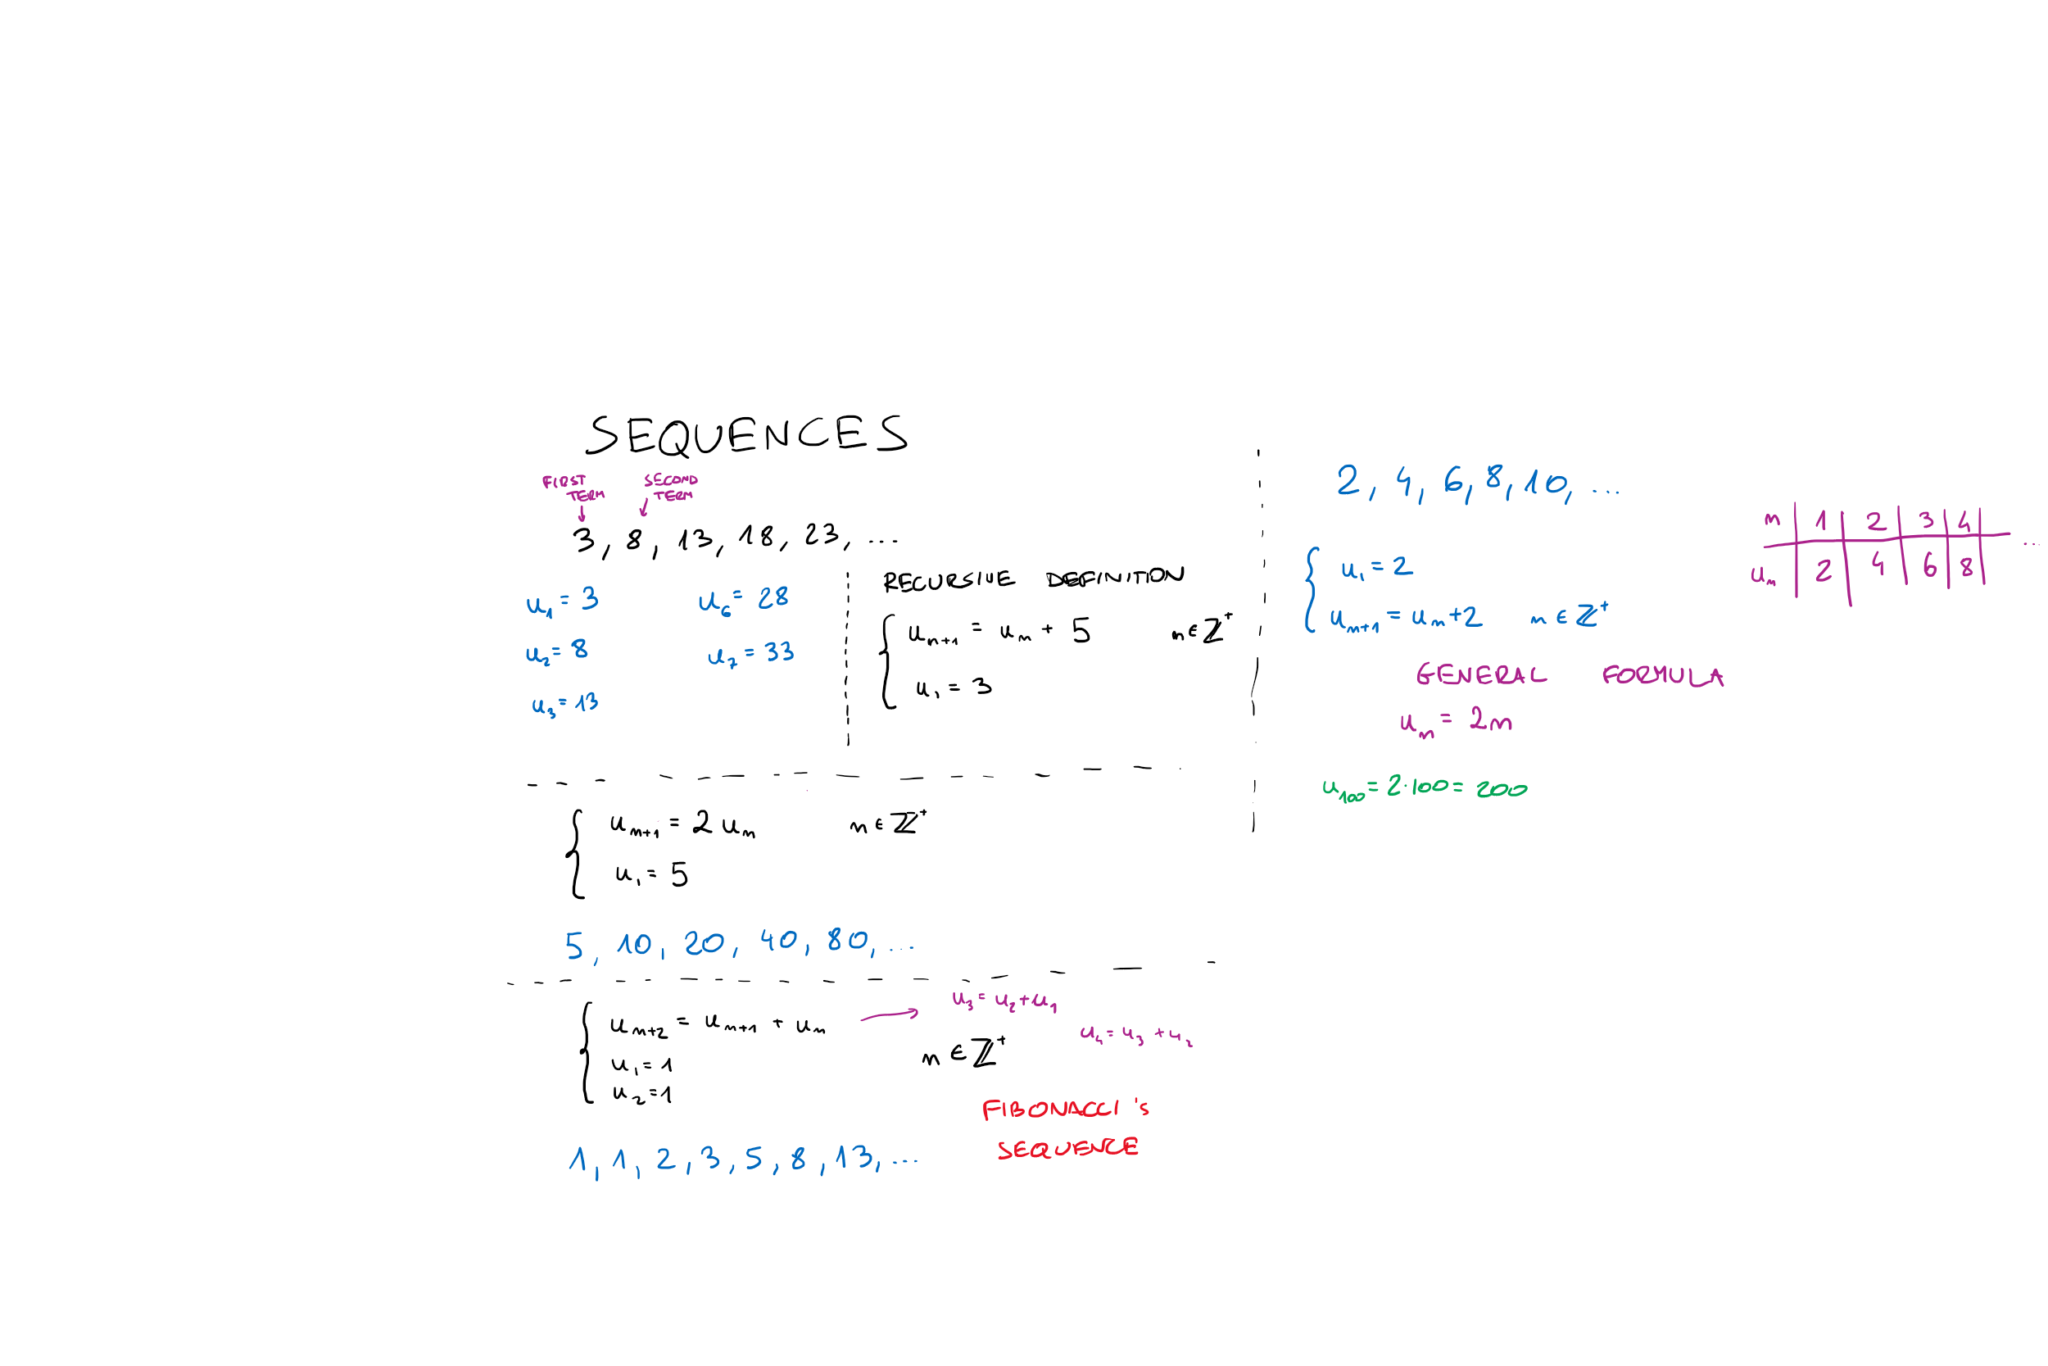 SEQUENCES
FIRST TERM
SECOND TERM
3, 8, 13, 18, 23, ...
u₁ = 3
u₆ = 28
u₂ = 8
u₇ = 33
u₃ = 13
RECURSIVE DEFINITION
uₙ₊₁ = uₙ + 5 n ∈ ℤ⁺
u₁ = 3
uₙ₊₁ = 2 uₙ n ∈ ℤ⁺
u₁ = 5
5, 10, 20, 40, 80, ...
uₙ₊₂ = uₙ₊₁ + uₙ → u₃ = u₂ + u₁
u₄ = u₃ + u₂
u₁ = 1
n ∈ ℤ⁺
u₂ = 1
FIBONACCI's
SEQUENCE
1, 1, 2, 3, 5, 8, 13, ...
2, 4, 6, 8, 10, ...
n | 1 | 2 | 3 | 4 | ...
uₙ | 2 | 4 | 6 | 8 |
u₁ = 2
uₙ₊₁ = uₙ + 2 n ∈ ℤ⁺
GENERAL FORMULA
uₙ = 2n
u₁₀₀ = 2·100 = 200